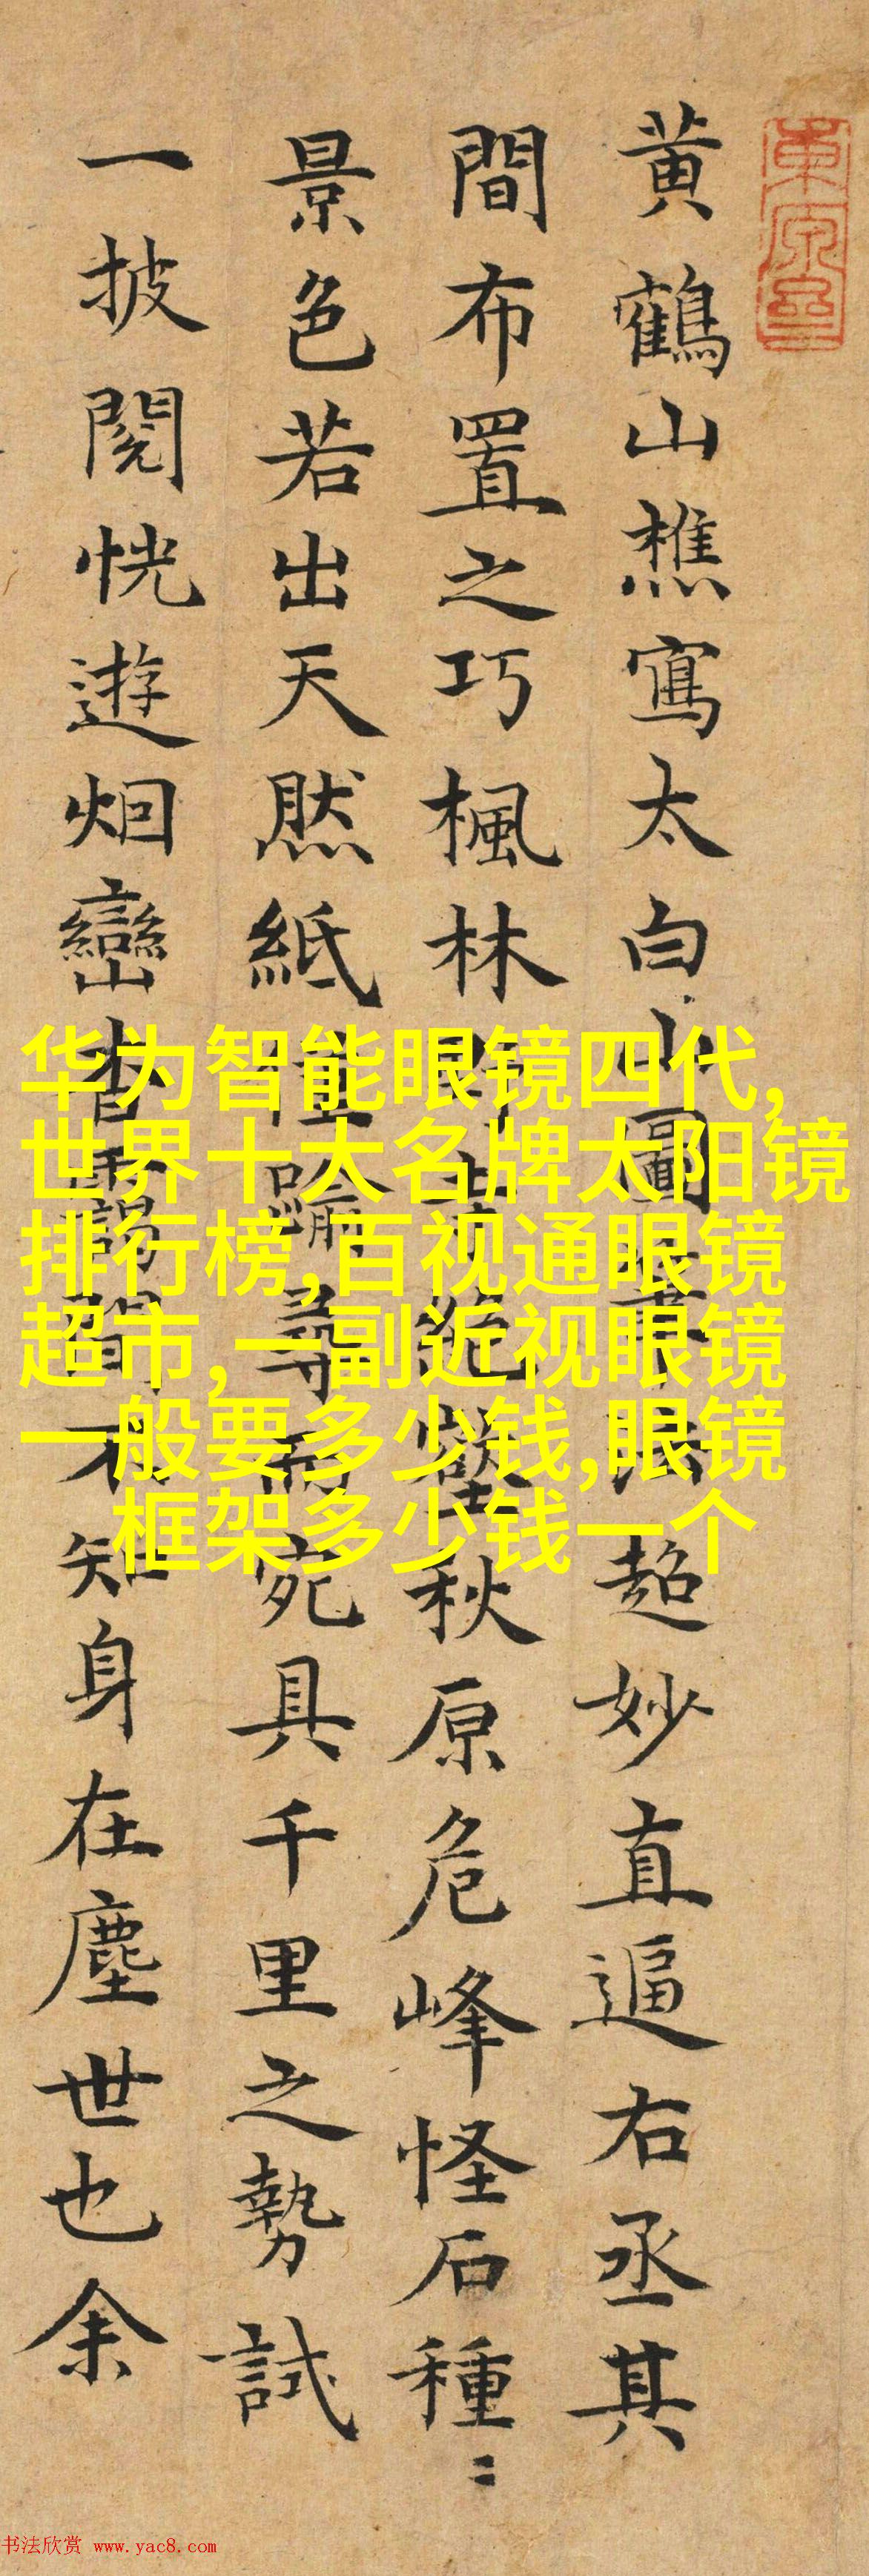 黄鶴山樵寫太白山圖筆法超妙直逼右丞其
間布置之巧楓林
秋原危峰怪石種〻
景色若出天然紙
尋
宛具千里之勢試
一披閱恍遊烟巒
間不知身在塵世也余
华为智能眼镜四代,
世界十大名牌太阳镜
排行榜,百视通眼镜
超市,一副近视眼镜
一般要多少钱,眼镜
框架多少钱一个
书法欣赏 www.yac8.com